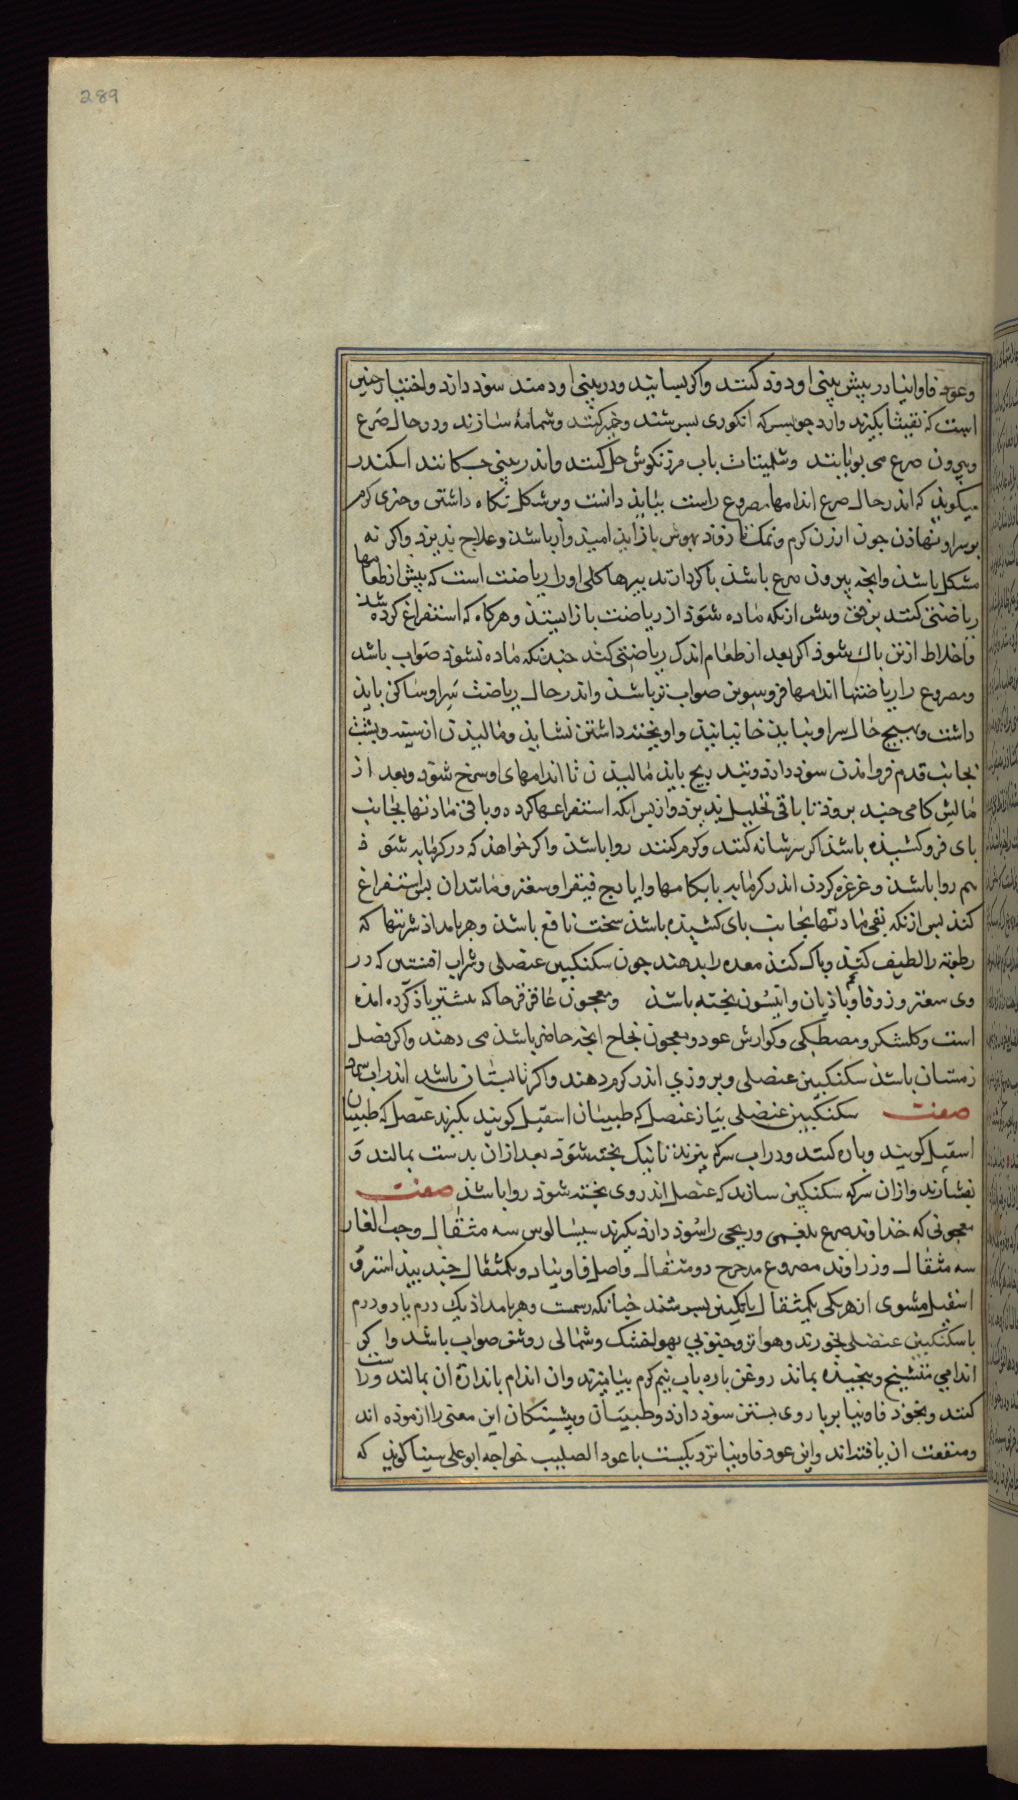 289
وعود فاوانیا در پیش بینی او دود کنند واکر بسایند ودر بینی او دمند سوذ دارد واختیار جنین
است که تفسیا بکیرند وارد جو بسرکه انکوری بسرشند وخمیر کنند وشمامۀ سازند ودر حال صرع
وبیرون صرع می بویانند وشلیثا باب مرزنکوش حل کنند واندر بینی جکانند اسکندر
میکویذ که اندر حال صرع اندامهاء مصروع راست بباید داشت وبر شکل نکاه داشتن وجیزی کرم
بر سر او نهاذن جون ارزن کرم ونمک تا زوذ بهوش باز آید امیذوار باشذ وعلاج پذیرد واکر نه
مشکل باشذ وانجه بیرون صرع باشذ باز کردارتدبیرها کلی اورا ریاضت است که پیش از طعامها
ریاضتی کنند برفق وبیش ازنکه مانده شوذ از ریاضت باز ایستذ وهرکاه که استفراغ کرده شذ
واخلاط از تن باک شوذ اکر بعد از طعام اندک ریاضتی کند جندانکه مانده نشوذ صواب باشد
ومصروع را ریاضتها اندامها فروسوین صواب تر باشذ واندر حال ریاضت سر او ساکن بایذ
داشت وبهیج حال سر او نبایذ جنبانیذ واویخته داشتن نشایذ ومالیذن از سینه وپشت
بجانب قدم فرواندن سوذ دارد وبتدریج بایذ مالیذن تا اندامهای او سرخ شوذ وبعد از
مالش کامی جند بروذ تا باقی تحلیل پذیرد واز پس انکه استفراغها کرده وباقی مادتها بجانب
بای فروکشیذه باشذ اکر سر شانه کنند وکرم کنند روا باشذ واکر خواهذ که در کرمابه شوذ
هم روا باشذ وغرغره کردن اندر کرمابه بابکامها وایارج فیقرا وسعتر ومانندان برای استفراغ
کند بس ازنکه نقی مادتها بجانب بای کشیذه باشذ سخت نافع باشذ وهر بامداذ شربتها که
رطوبة را لطیف کنذ وباک کنذ معده را بدهند جون سکنکبین عنصلی وشراب افسنتین که در
وی سعتر وزوفا وباذیان وانیسون پخته باشذ ومعجون عاقرقرحا که بیشتر یاذ کرده امده
است وکلشکر ومصطکی وکوارش عود ومعجون نجاح انجه حاضر باشذ می دهند واکر فصل
زمستان باشذ سکنکبین عنصلی وبروزی اندر کرم دهند واکر تابستان باشد اندر اب سرد
صفت سکنکبین عنصلی پیاز عنصل که طبیبان اسقیل کویند بکیرند عنصل که طبیبان
اسقیل کویند وباره کنند ودر اب سرکه بپزند تا نیک پخته شوذ بعد ازان بدست بمالند و
بفشارند وازان سرکه سکنکبین سازند که عنصل اندر وی پخته شوذ روا باشذ صفت
معجونی که خداوند صرع بلغمی وریحی را سوذ دارد بکیرند سیسالیوس سه مثقال وحب الغار
سه مثقال وزراوند مدحرج دو مثقال واصل فاوینا دو مثقال جندبیذستر و
اسقیل مشوی از هر یکی یکمثقال باتکبین بسرشند جنانکه رسمست وهر بامداذ یک درم یا دو درم
با سکنکبین عنصلی بخورند وهوا تر وجنوبی بهوا خشک وشمالی روشن صواب باشد واکر
اندامی متشنج وپیجیذه بماند روغن باره باب نیم کرم بیامیزند وان اندام باندازه ان بمالند وراست
کنند وبخود فاوینا بر بازوی بستن سوذ دارد وطبیبان وپیشینکان این معنی را ازموذه اند
ومنفعت ان یافته اند واین عود فاوینا نزدیکست با عود الصلیب خواجه ابو علی سینا کویذ که